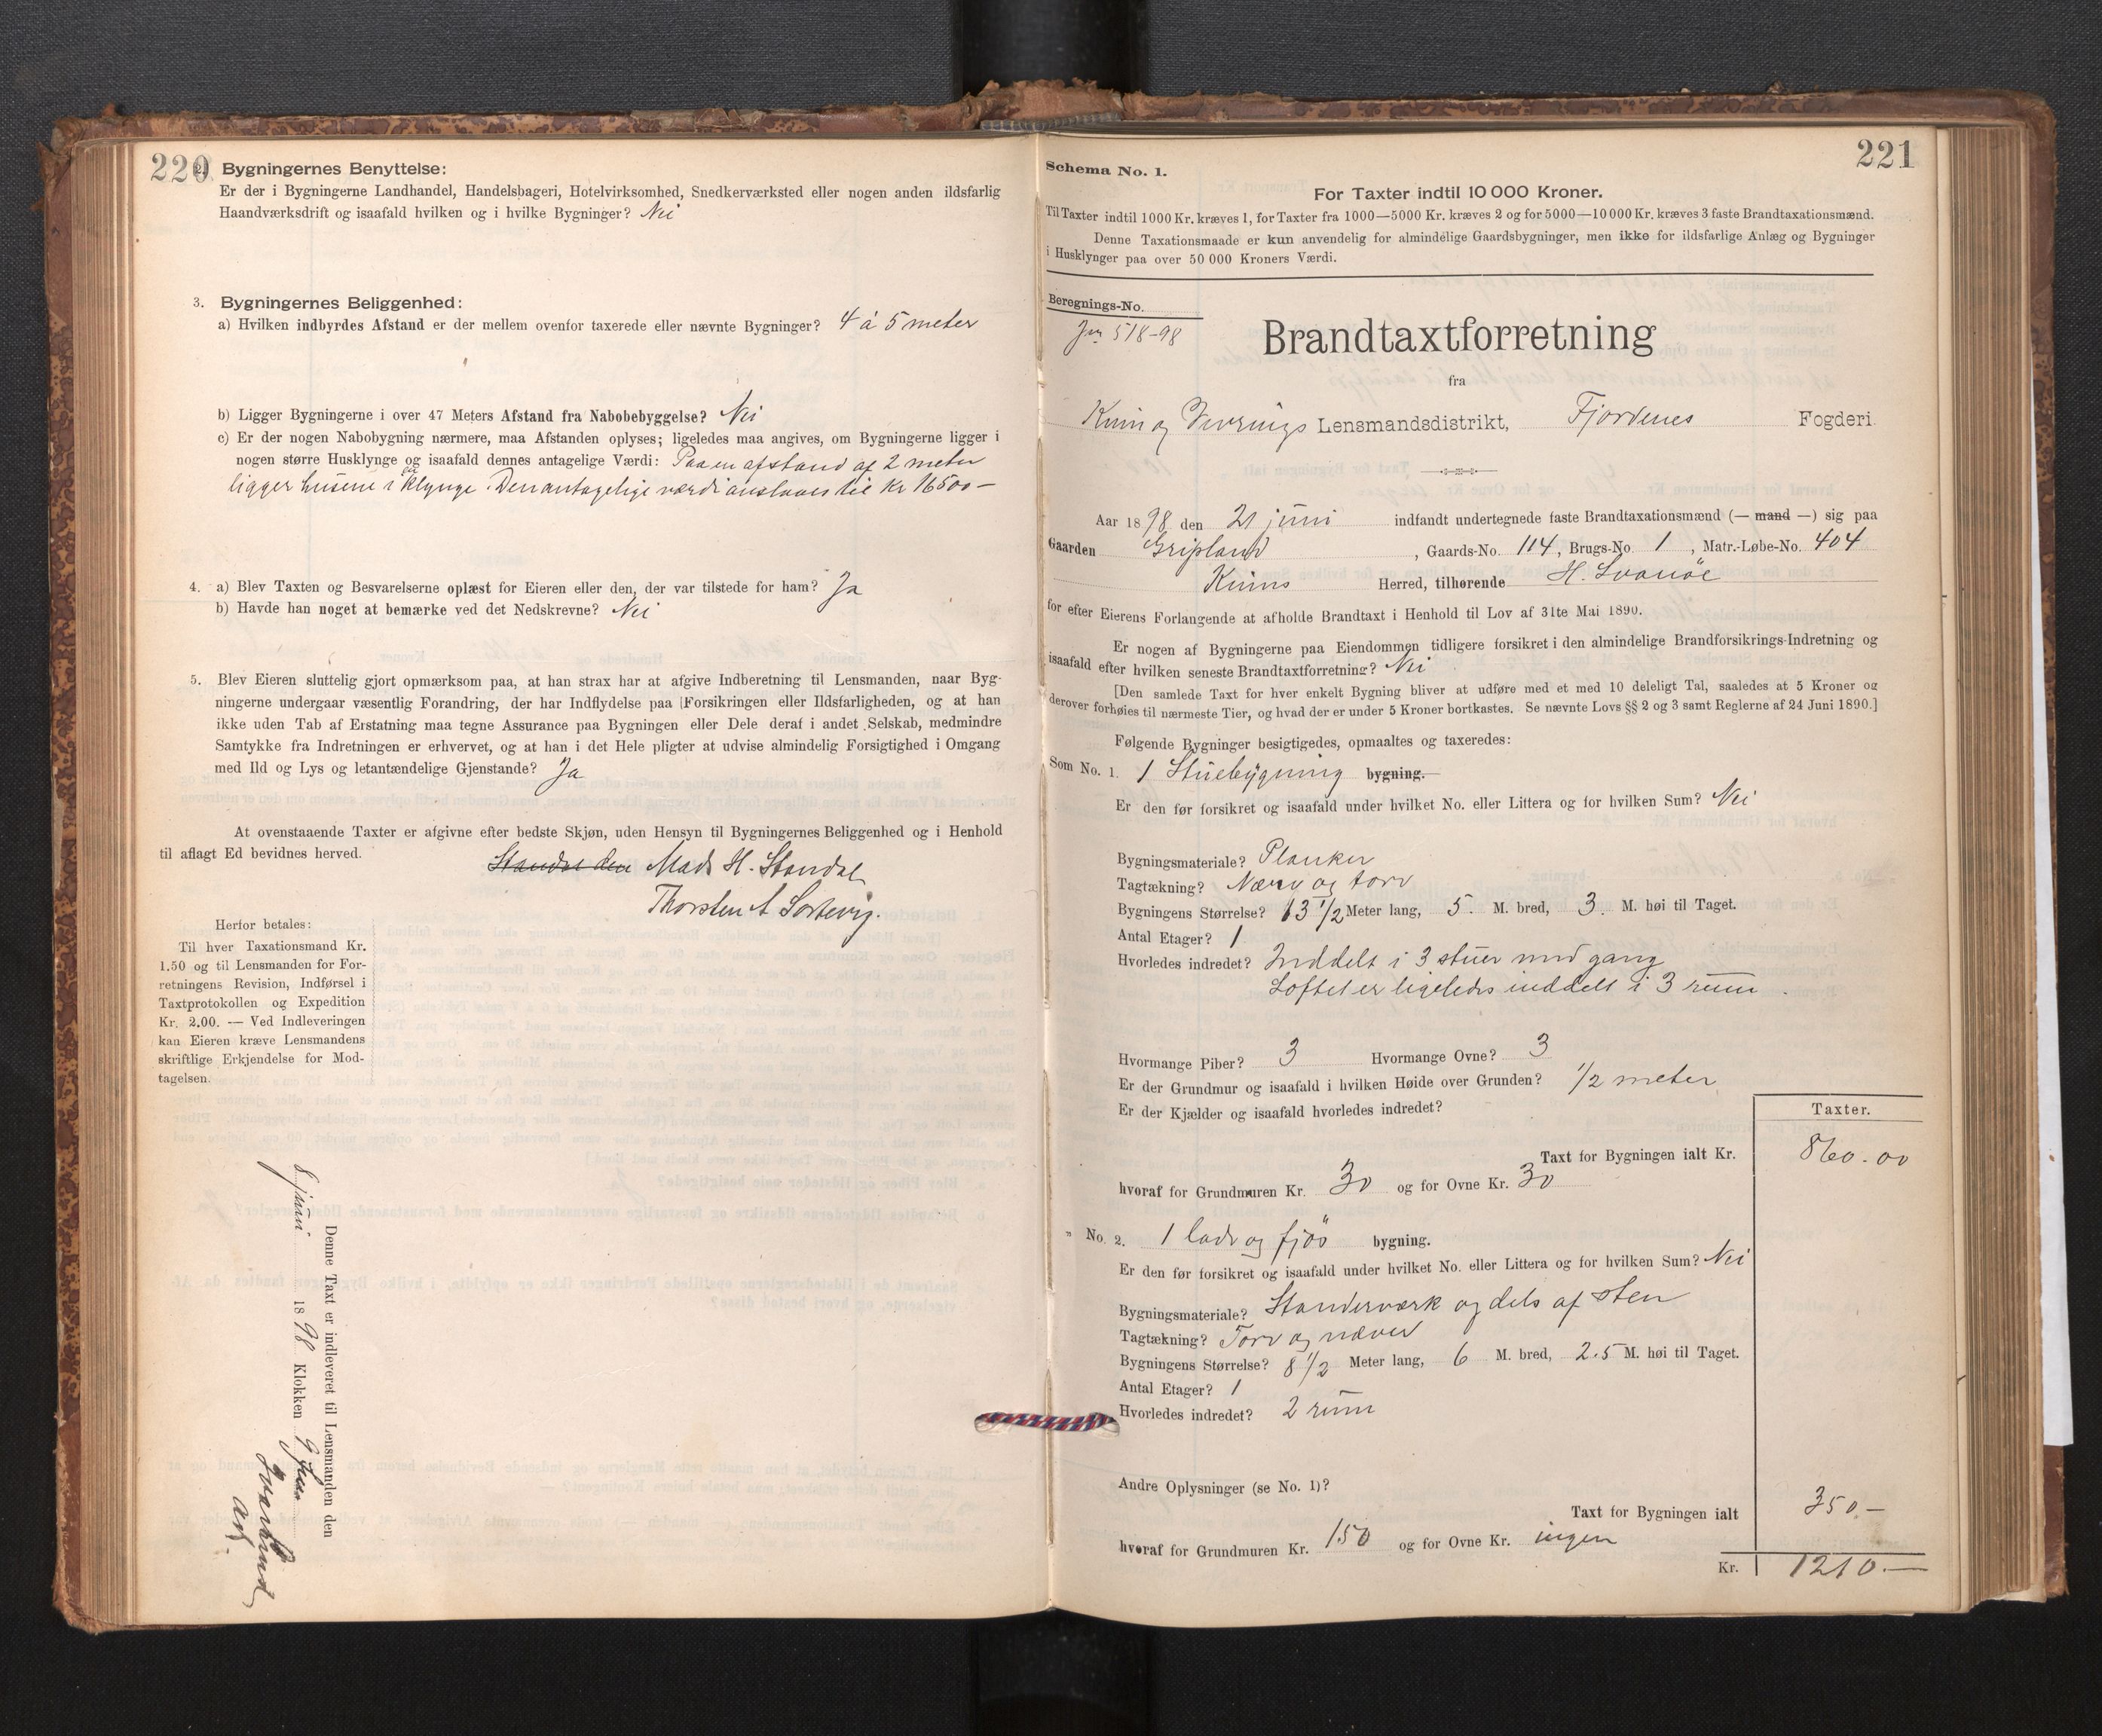 220
2. Bygningernes Benyttelse:
Er der i Bygningerne Landhandel, Handelsbageri, Hotelvirksomhed, Snedkerværksted eller nogen anden ildsfarlig
Haandværksdrift og isaafald hvilken og i hvilke Bygninger? Nei
3. Bygningernes Beliggenhed:
a) Hvilken indbyrdes Afstand er der mellem ovenfor taxerede eller nævnte Bygninger? 4 á 5 meter
b) Ligger Bygningerne i over 47 Meters Afstand fra Nabobebyggelse? Nei
c) Er der nogen Nabobygning nærmere, maa Afstanden oplyses; ligeledes maa angives, om Bygningerne ligger i
nogen større Husklynge og isaafald dennes antagelige Værdi: Paa en afstand af 2 meter
ligger husene i klynge. Den antagelige værdi anslaaes til Kr 16500 —
4. a) Blev Taxten og Besvarelserne oplæst for Eieren eller den, der var tilstede for ham? Ja
b) Havde han noget at bemærke ved det Nedskrevne? Nei
5. Blev Eieren sluttelig gjort opmærksom paa, at han strax har at afgive Indberetning til Lensmanden, naar Byg-
ningerne undergaar væsentlig Forandring, der har Indflydelse paa Forsikringen eller Ildsfarligheden, og at han
ikke uden Tab af Erstatning maa tegne Assurance paa Bygningen eller Dele deraf i andet Selskab, medmindre
Samtykke fra Indretningen er erhvervet, og at han i det Hele pligter at udvise almindelig Forsigtighed i Omgang
med Ild og Lys og letantændelige Gjenstande? Ja
At ovenstaaende Taxter er afgivne efter bedste Skjøn, uden Hensyn til Bygningernes Beliggenhed og i Henhold
til aflagt Ed bevidnes herved.
Standal den Mads H. Standal
Thorsten A Sortevig.
Herfor betales:
Til hver Taxationsmand Kr.
1.50 og til Lensmanden for For-
retningens Revision, Indførsel i
Taxtprotokollen og Expedition
Kr. 2.00. — Ved Indleveringen
kan Eieren kræve Lensmandens
skriftlige Erkjendelse for Mod-
tagelsen.
Denne Taxt er indleveret til Lensmanden den
8 juni 1898 Klokken 9
221
Schema No. 1.
For Taxter indtil 10 000 Kroner.
Til Taxter indtil 1000 Kr. kræves 1, for Taxter fra 1000—5000 Kr. kræves 2 og for 5000—10 000 Kr. kræves 3 faste Brandtaxationsmænd.
Denne Taxationsmaade er kun anvendelig for almindelige Gaardsbygninger, men ikke for ildsfarlige Anlæg og Bygninger
i Husklynger paa over 50 000 Kroners Værdi.
Beregnings-No.
Jnr 518-98
Brandtaxtforretning
fra
Kinn og Vevrings Lensmandsdistrikt, Fjordenes Fogderi
Aar 1898 den 21 juni indfandt undertegnede faste Brandtaxationsmænd (— mand —) sig paa
Gaarden Gripland, Gaards-No. 114, Brugs-No. 1, Matr.-Løbe-No. 404
Kinns Herred, tilhørende H. Svanöe
for efter Eierens Forlangende at afholde Brandtaxt i Henhold til Lov af 31te Mai 1890.
Er nogen af Bygningerne paa Eiendommen tidligere forsikret i den almindelige Brandforsikrings-Indretning og
isaafald efter hvilken seneste Brandtaxtforretning? Nei
[Den samlede Taxt for hver enkelt Bygning bliver at udføre med et med 10 deleligt Tal, saaledes at 5 Kroner og
derover forhøies til nærmeste Tier, og hvad der er under 5 Kroner bortkastes. Se nævnte Lovs §§ 2 og 3 samt Reglerne af 24 Juni 1890.]
Følgende Bygninger besigtigedes, opmaaltes og taxeredes:
Som No. 1. 1 Stuebygning bygning.
Er den før forsikret og isaafald under hvilket No. eller Littera og for hvilken Sum? Nei
Bygningsmateriale? Planker
Tagtækning? Næver og torv
Bygningens Størrelse? 13 1/2 Meter lang, 5. M. bred, 3. M. høi til Taget.
Antal Etager? 1
Hvorledes indredet? Inddelt i 3 stuer med gang
Loftet er ligeledes inddelt i 3 rum.
Hvormange Piber? 3 Hvormange Ovne? 3
Er der Grundmur og isaafald i hvilken Høide over Grunden? 1/2 meter
Er der Kjælder og isaafald hvorledes indredet?
Taxter.
Taxt for Bygningen ialt Kr. 860.00
hvoraf for Grundmuren Kr. 30 og for Ovne Kr. 30
" No. 2. 1 lade og fjös bygning.
Er den før forsikret og isaafald under hvilket No. eller Littera og for hvilken Sum? Nei
Bygningsmateriale? Standerværk og dels af sten
Tagtækning? Torv og næver
Bygningens Størrelse? 8 1/2 Meter lang, 6 M. bred, 2.5 M. høi til Taget.
Antal Etager? 1
Hvorledes indredet? 2 rum
Andre Oplysninger (se No. 1)?
Taxt for Bygningen ialt 350.—
hvoraf for Grundmuren Kr. 150 og for Ovne Kr. ingen
Kr. 1210.—